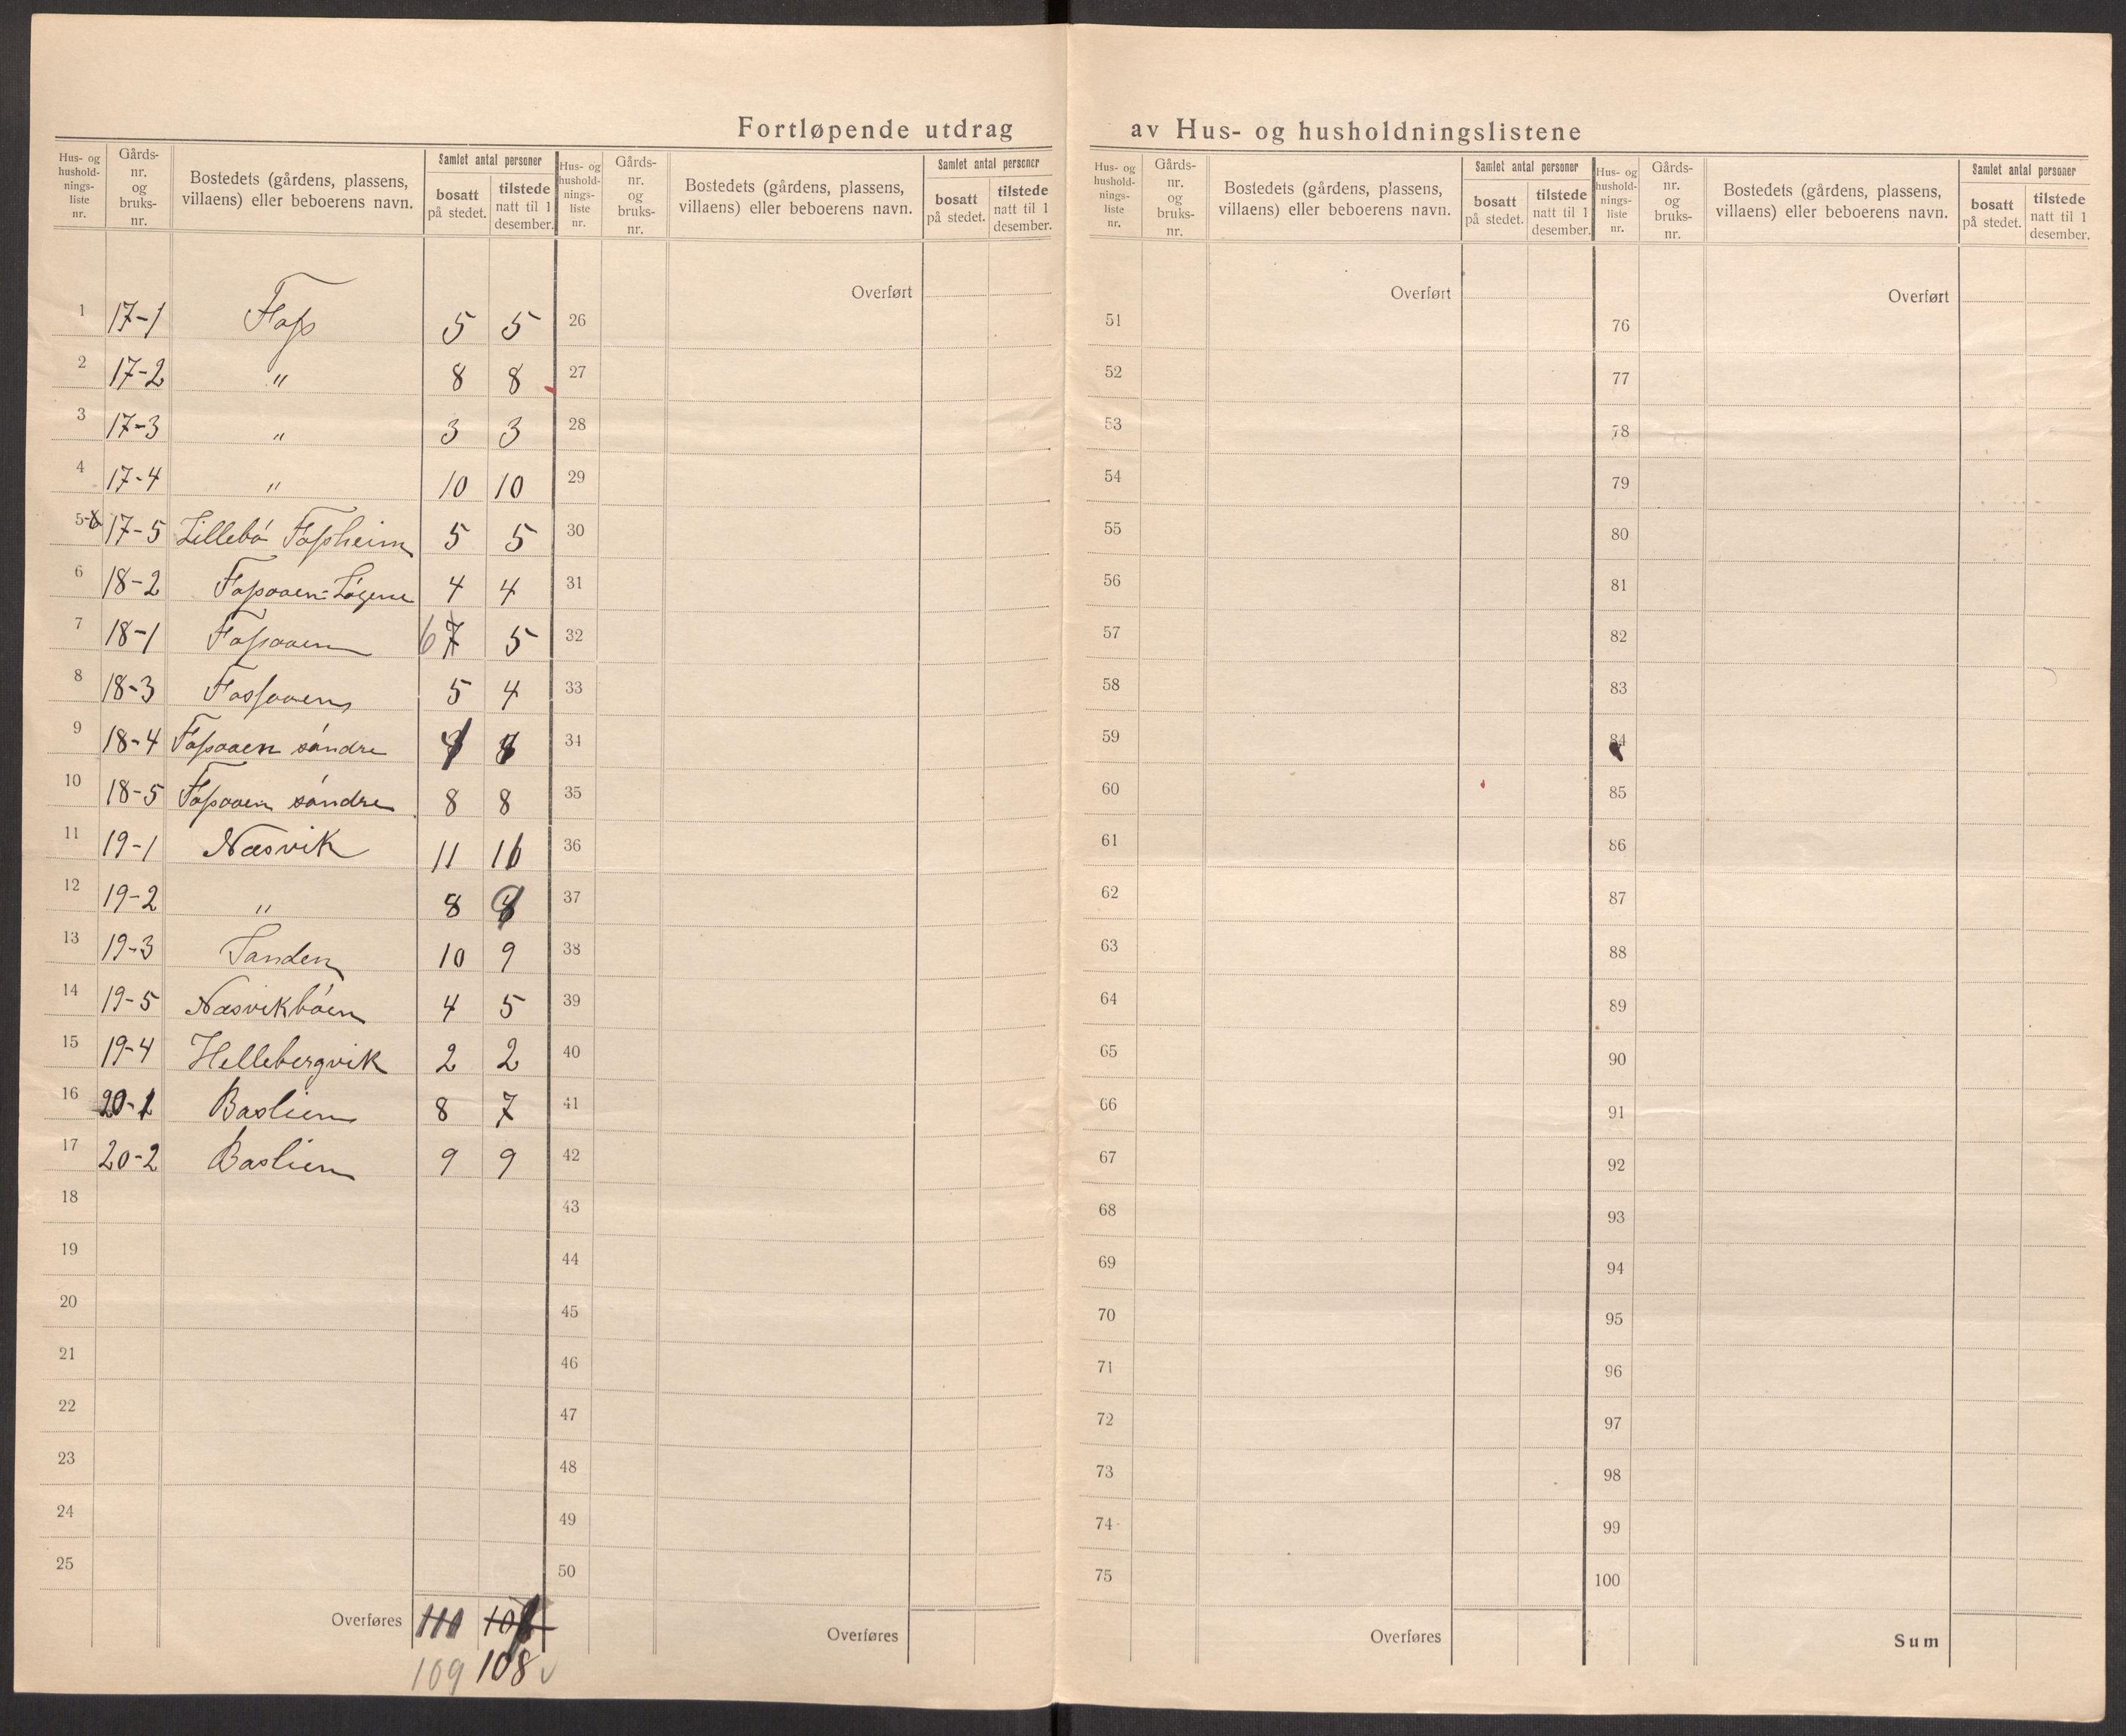 Fortløpende utdrag av Hus- og husholdningslistene
Hus- og hushold- nings- liste nr.
Gårds- nr. og bruks- nr.
Bostedets (gårdens, plassens, villaens) eller beboerens navn.
Samlet antal personer
bosatt på stedet.
tilstede natt til 1 desember.
Hus- og hushold- nings- liste nr.
Gårds- nr. og bruks- nr.
Bostedets (gårdens, plassens, villaens) eller beboerens navn.
Samlet antal personer
bosatt på stedet.
tilstede natt til 1 desember.
Hus- og hushold- nings- liste nr.
Gårds- nr. og bruks- nr.
Bostedets (gårdens, plassens, villaens) eller beboerens navn.
Samlet antal personer
bosatt på stedet.
tilstede natt til 1 desember.
Hus- og hushold- nings- liste nr.
Gårds- nr. og bruks- nr.
Bostedets (gårdens, plassens, villaens) eller beboerens navn.
Samlet antal personer
bosatt på stedet.
tilstede natt til 1 desember.
1 17-1 Foss 5 5
2 17-2 " 8 8
3 17-3 " 3 3
4 17-4 " 10 10
5 17-5 Lillebö Fossheim 5 5
6 18-2 4 4
7 18-1 Fossaaen 6 7 5
8 18-3 Fossaaen 5 4
9 18-4 Fossaaen söndre
10 18-5 Fossaaen söndre 8 8
11 19-1 Næsvik 11
12 19-2 " 8
13 19-3 Sanden 10 9
14 19-5 Næsvikböen 4 5
15 19-4 Hellebergvik 2 2
16 20-1 Baslien 8 7
17 20-2 Baslien 9 9
18
19
20
21
22
23
24
25
Overføres 110
109 108
Overført
26
27
28
29
30
31
32
33
34
35
36
37
38
39
40
41
42
43
44
45
46
47
48
49
50
Overføres
Overført
51
52
53
54
55
56
57
58
59
60
61
62
63
64
65
66
67
68
69
70
71
72
73
74
75
Overføres
Overført
76
77
78
79
80
81
82
83
84
85
86
87
88
89
90
91
92
93
94
95
96
97
98
99
100
Sum